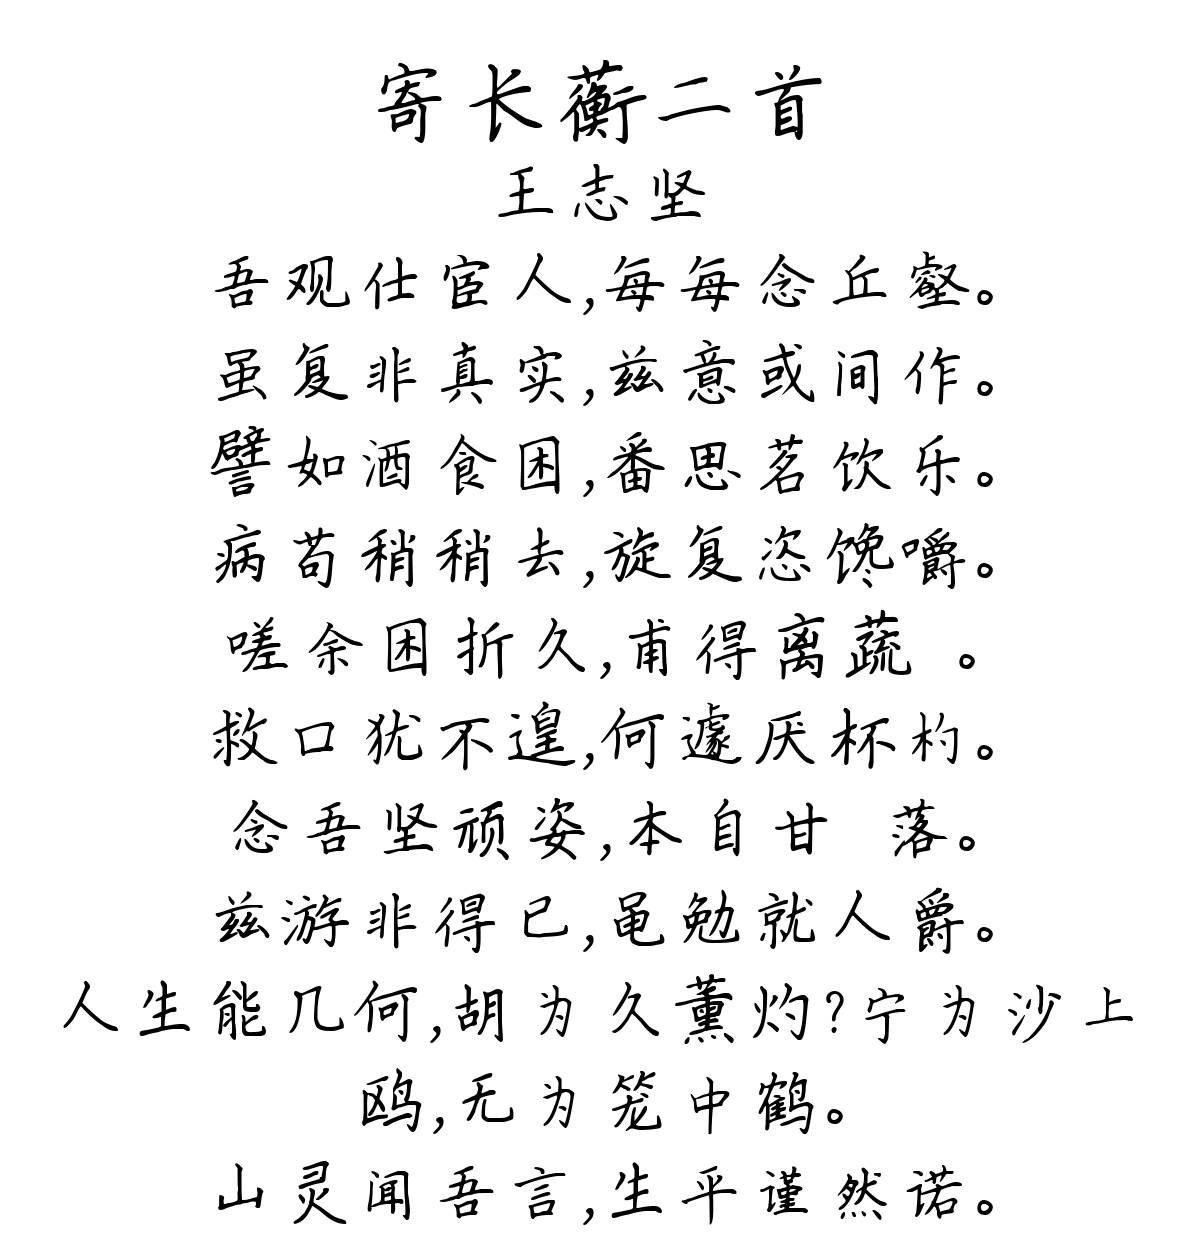 寄长蘅二首
王志坚
吾观仕宦人,每每念丘壑。
虽复非真实,兹意或间作。
譬如酒食困,番思茗饮乐。
病苟稍稍去,旋复恣馋嚼。
嗟余困折久,甫得离蔬 。
救口犹不遑,何遽厌杯杓。
念吾坚顽姿,本自甘 落。
兹游非得已,黾勉就人爵。
人生能几何,胡为久薰灼?宁为沙上
鸥,无为笼中鹤。
山灵闻吾言,生平谨然诺。